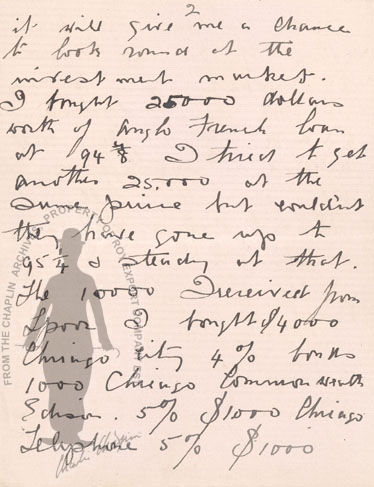 2
it will give me a chance
to look round at the
investment market.
I bought 25000 dollars
worth of Anglo French loan
at 94 7/8 I tried to get
another 25,000 at the
same price but couldn't
they have gone up to
95 1/4 & steady at that.
The 10000 I received from
Spoor I bought $4000
Chicago City 4% bonds
1000 Chicago Commonwealth
Edison. 5% $1000 Chicago
Telephone 5% $1000
FROM THE CHAPLIN ARCHIVE PROPERTY OF ROY EXPORT COMPANY
Charlie Chaplin